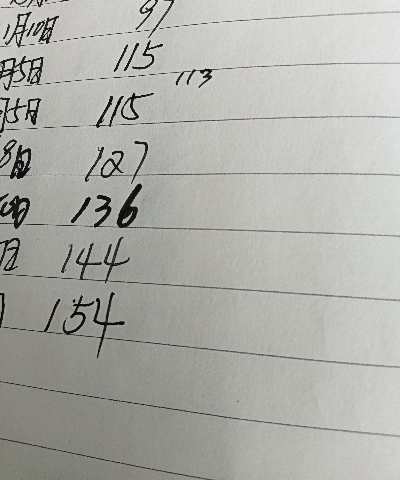 97
1月10日 115
月5日 113
月5日 115
8日 127
日 136
日 144
154